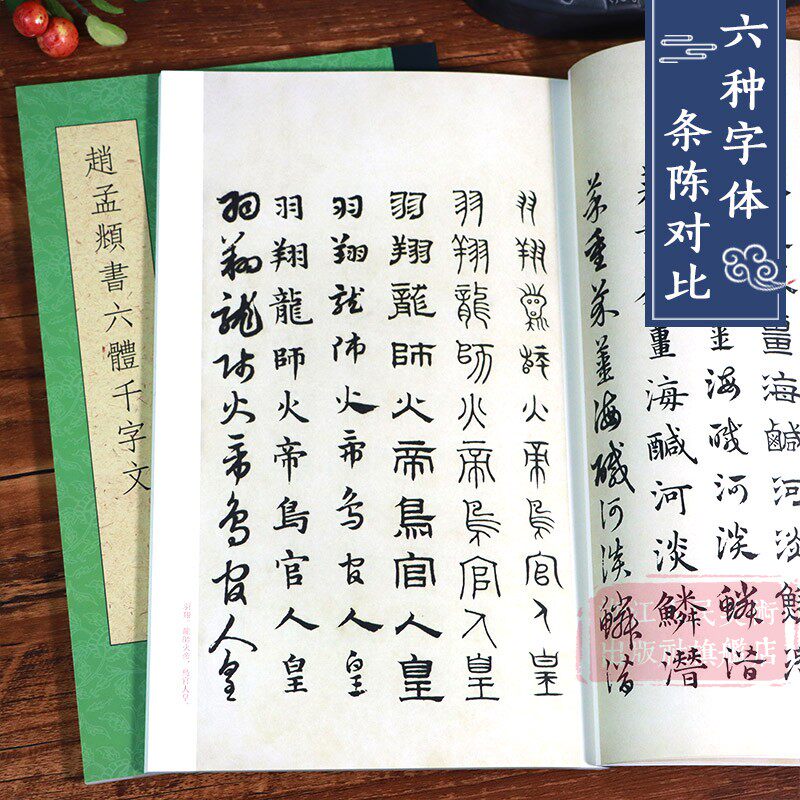 六种字体
条陈对比
趙孟頫書六體千字文
薑海鹹河淡
薑海鹹河淡鱗潛
薑海鹹河淡鱗潛
菜重芥薑海鹹河淡鱗潛
羽翔龍師火帝鳥官人皇
羽翔龍師火帝鳥官人皇
羽翔龍師火帝鳥官人皇
羽翔龍師火帝鳥官人皇
羽翔龍師火帝鳥官人皇
羽翔龍師火帝鳥官人皇
羽翔。龍師火帝，鳥官人皇。
江 民美術
出版社旗艦店